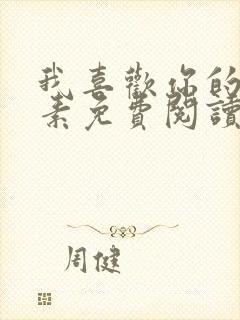 我喜歡你的
素免費閱讀
周健